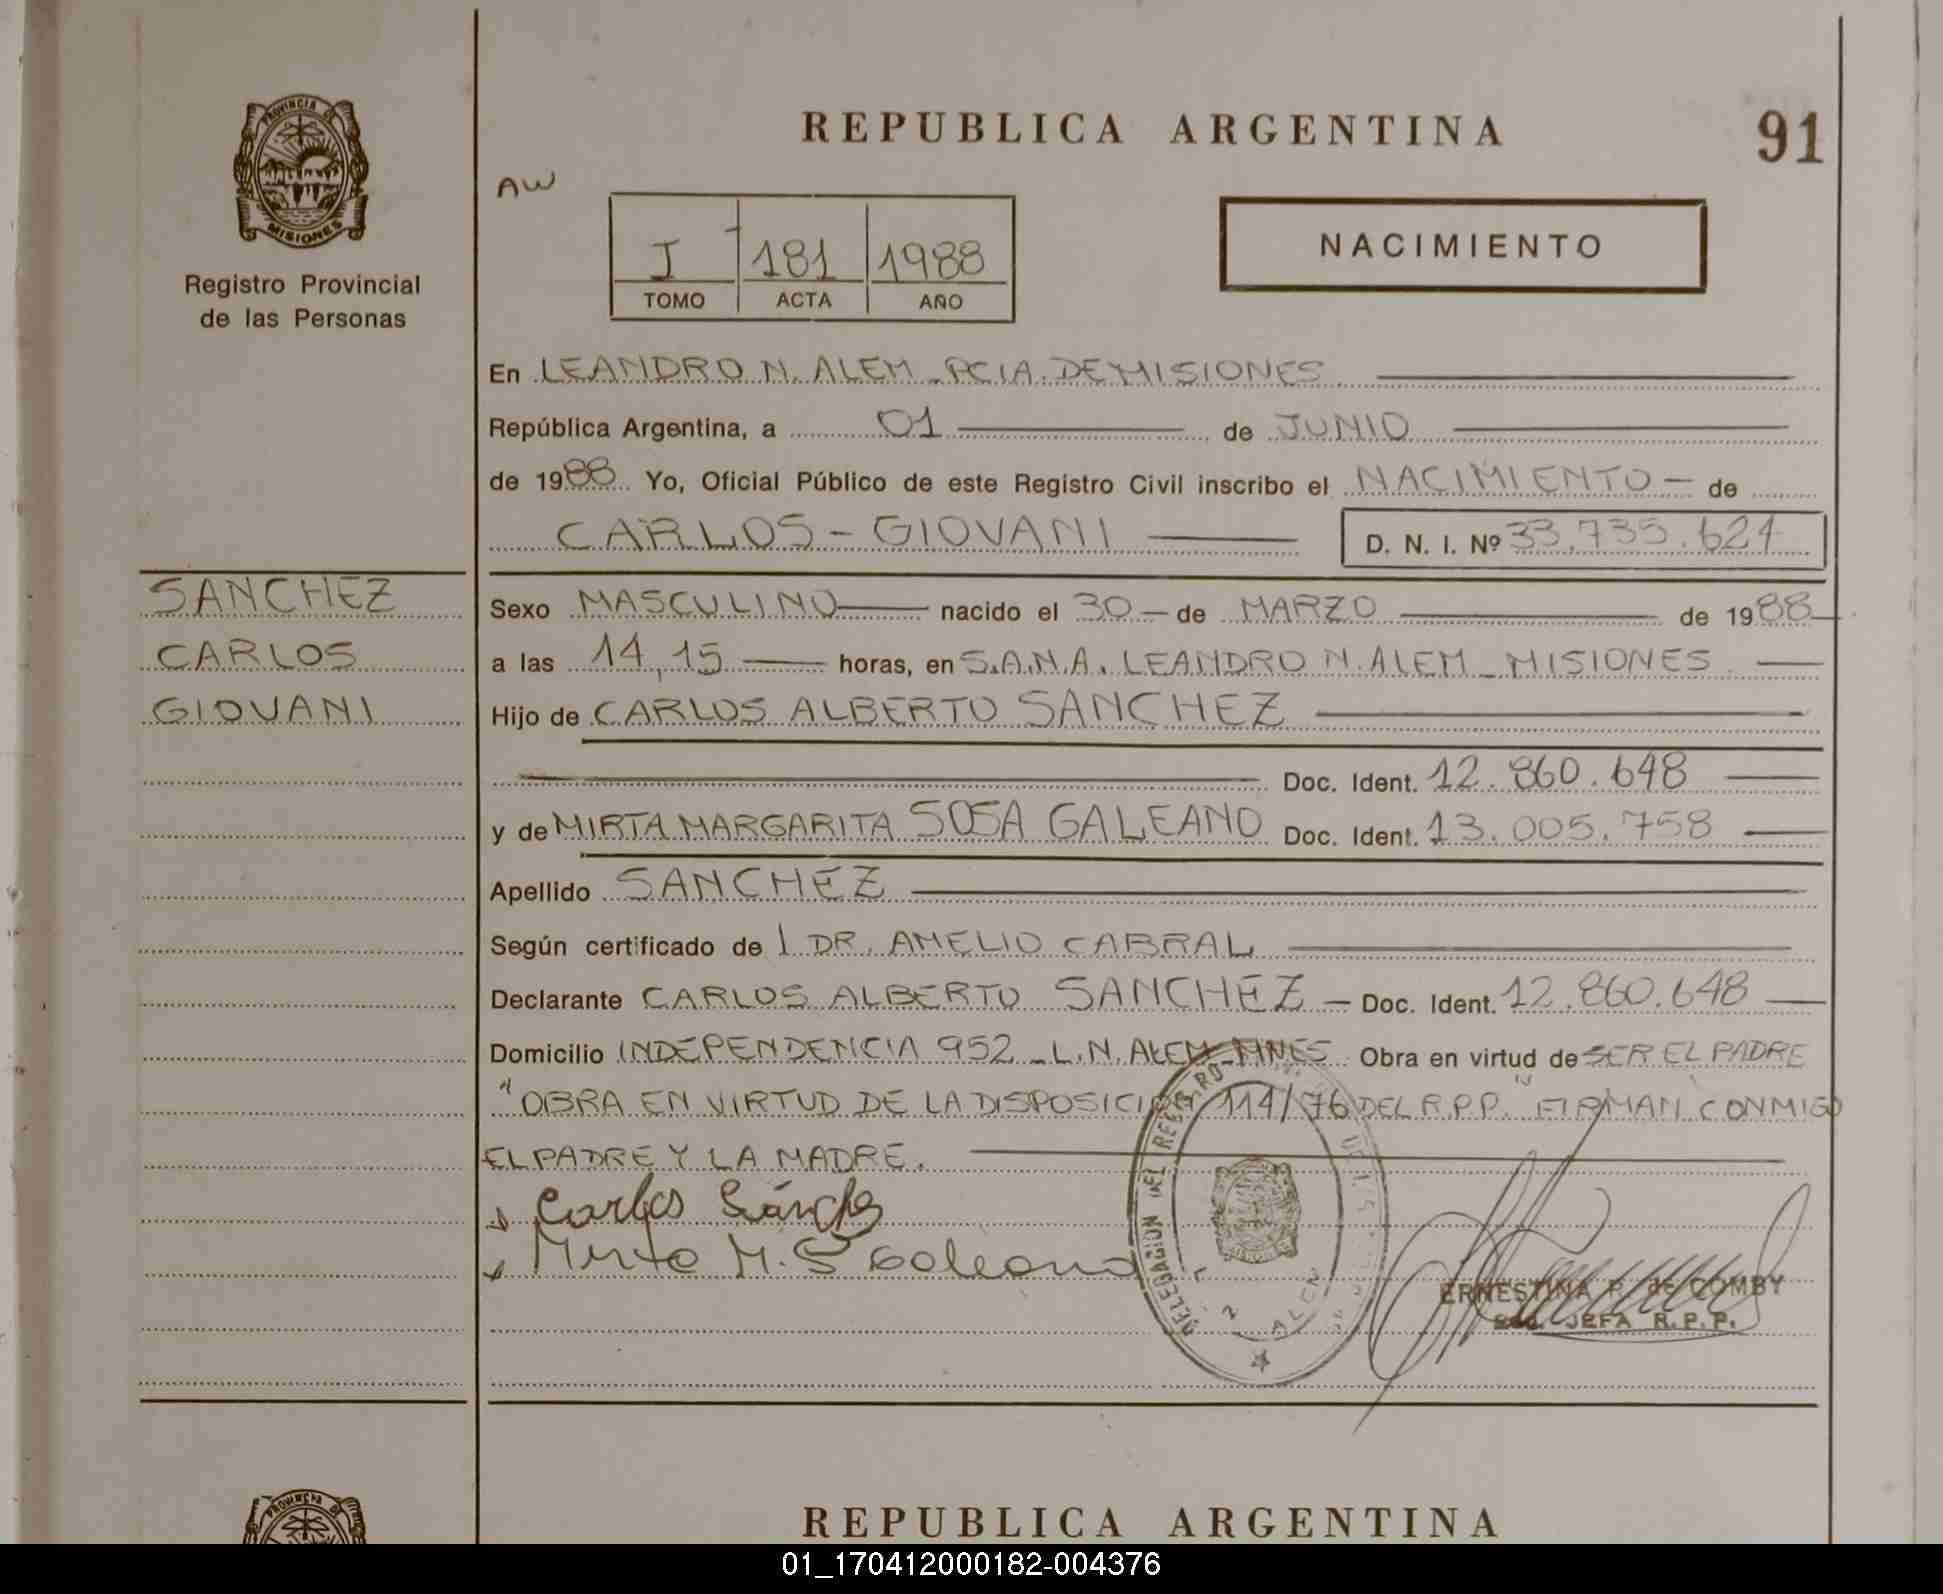 PROVINCIA DE
MISIONES
Registro Provincial
de las Personas
REPUBLICA ARGENTINA
91
AW
I 181 1988
TOMO ACTA AÑO
NACIMIENTO
En LEANDRO N. ALEM - PCIA. DE MISIONES
República Argentina, a 01 de JUNIO
de 1988 Yo, Oficial Público de este Registro Civil inscribo el NACIMIENTO - de
CARLOS - GIOVANI D. N. I. Nº 33.735.621
SANCHEZ
CARLOS
GIOVANI
Sexo MASCULINO nacido el 30 - de MARZO de 1988
a las 14,15 horas, en S.A.N.A. LEANDRO N. ALEM - MISIONES
Hijo de CARLOS ALBERTO SANCHEZ
Doc. Ident. 12.860.648
y de MIRTA MARGARITA SOSA GALEANO Doc. Ident. 13.005.758
Apellido SANCHEZ
Según certificado de l DR. AMELIO CABRAL
Declarante CARLOS ALBERTO SANCHEZ - Doc. Ident. 12.860.648
Domicilio INDEPENDENCIA 952 - L.N. ALEM - MNES Obra en virtud de SER EL PADRE
"OBRA EN VIRTUD DE LA DISPOSICION 114/76 DEL R.P.P." FIRMAN CONMIGO
EL PADRE Y LA MADRE.
Carlos Sánchez
Mirta M. S Galeano
DELEGACION DEL REGISTRO
ALEM
ERNESTINA P. de COMBY
JEFA R.P.P.
PROVINCIA DE
REPUBLICA ARGENTINA
01_170412000182-004376